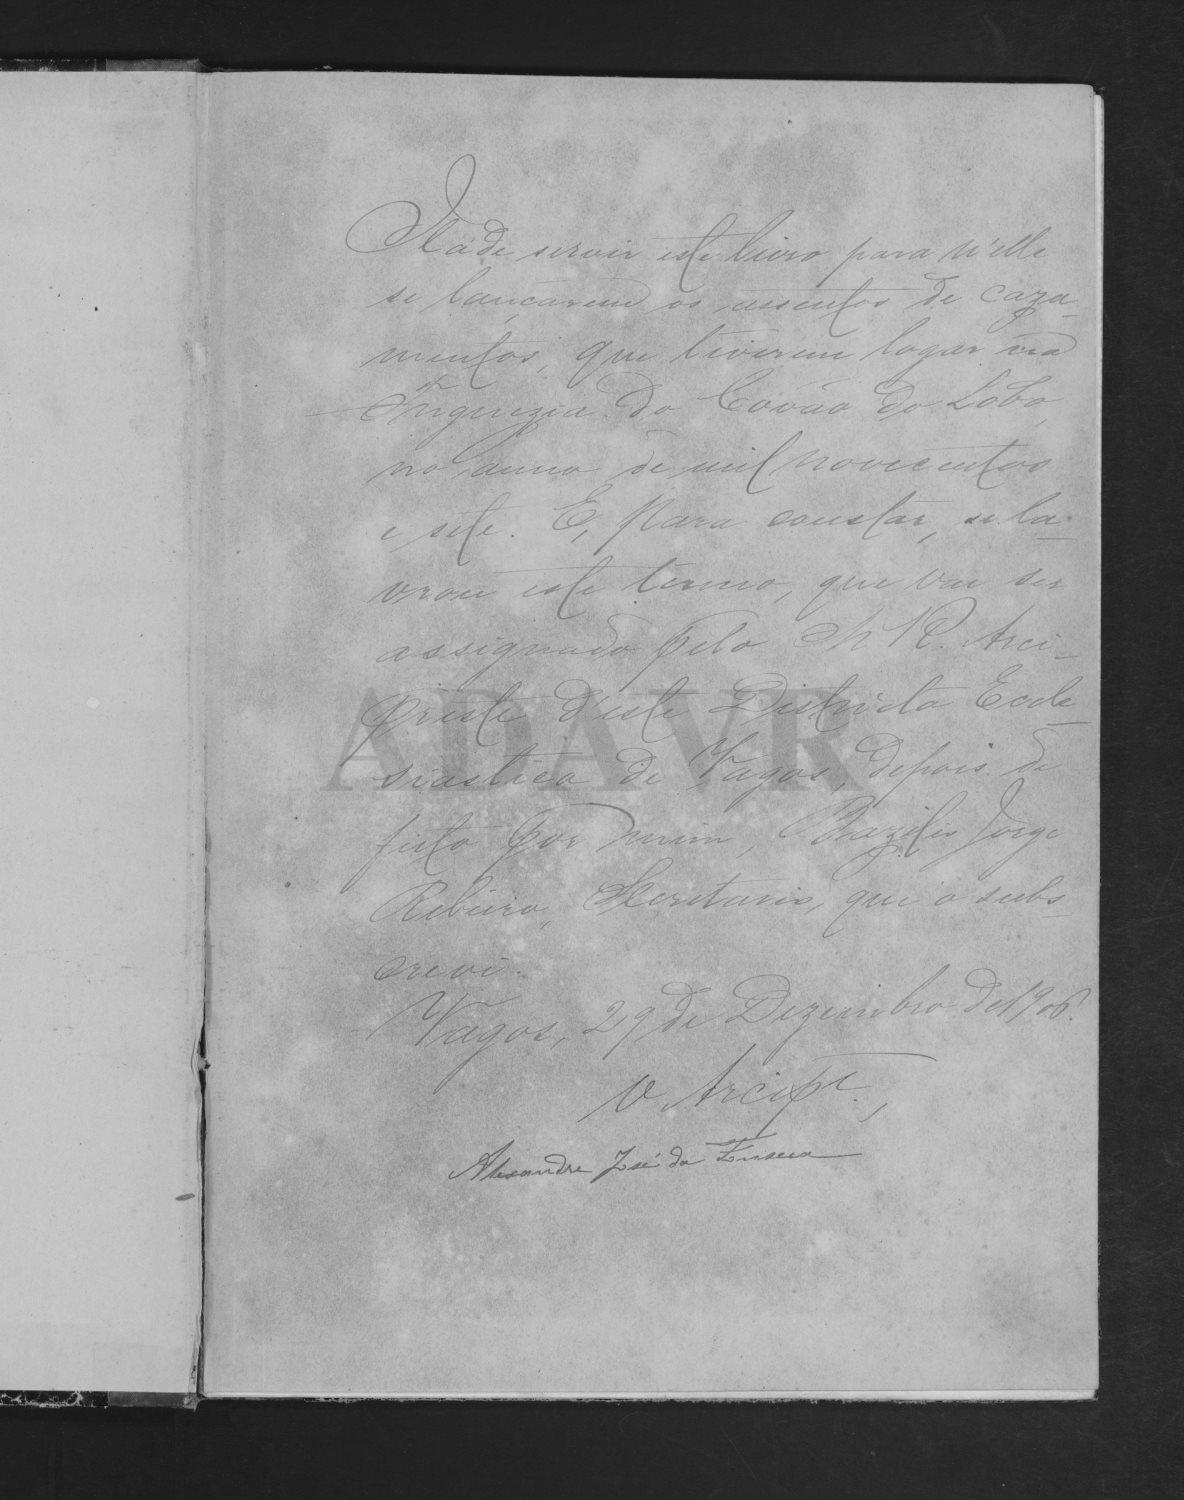 Háde servir este livro para n'elle
se lançarem os assentos de caza-
mentos, que tiverem logar na
Freguezia do Covão do Lobo,
no anno de mil novecentos
e sete. E, para constar, se la-
vrou este termo, que vae ser
assignado pelo M R. Arci-
preste d'este Districto Eccle-
siastico de Vagos, depois de
feito por mim, Bazilio Jorge
Ribeiro, Secretario, que o subs-
crevi.
Vagos, 29 de Dezembro de 1906.
O Arcipe.,
Alexandre José da Fonseca
ADAVR